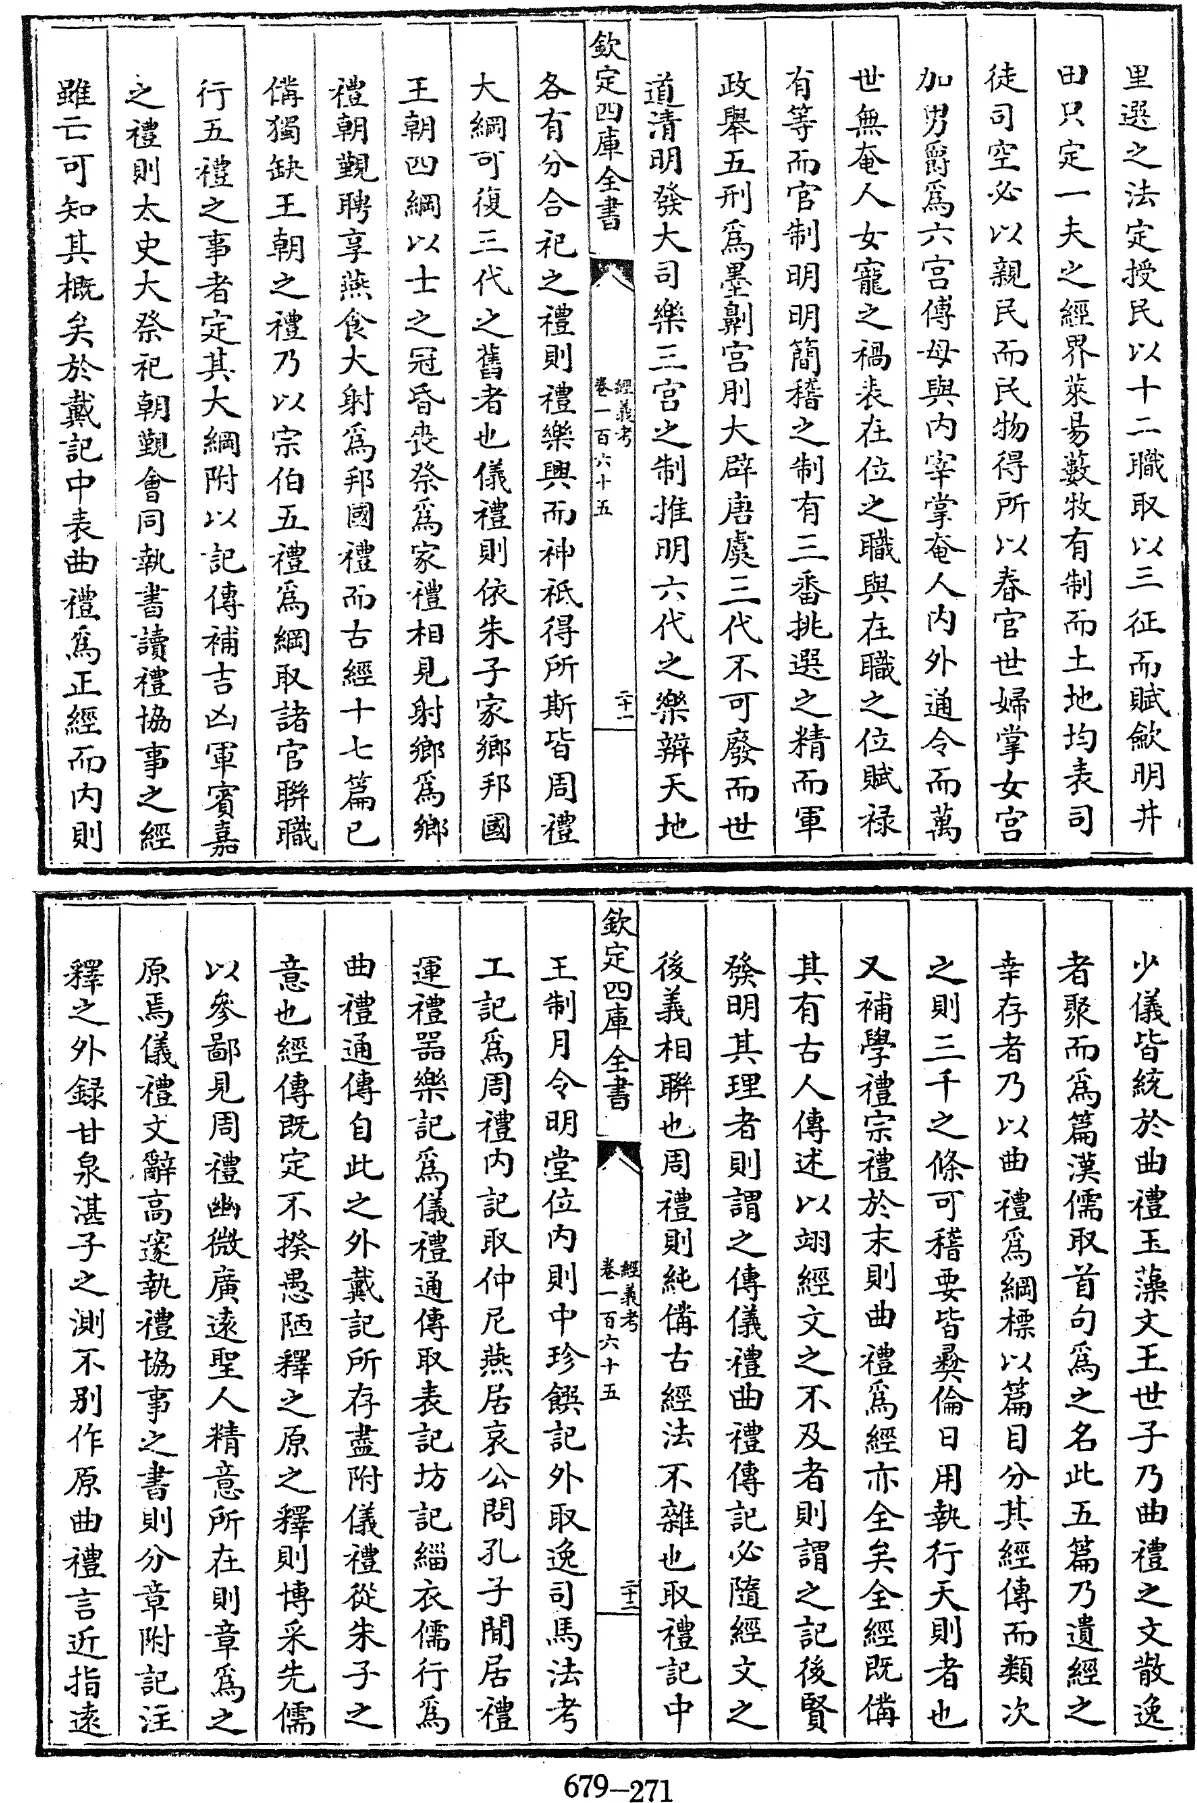 里選之法定授民以十二職取以三征而賦歛明井
田只定一夫之經界萊易藪牧有制而土地均表司
徒司空必以親民而民物得所以春官世婦掌女宮
加男爵爲六宫傅母與内宰掌奄人内外通令而萬
世無奄人女寵之禍表在位之職與在職之位賦祿
有等而官制明明簡稽之制有三番挑選之精而軍
政舉五刑爲墨劓宫刖大辟唐虞三代不可廢而世
道清明發大司樂三宫之制推明六代之樂辨天地
欽定四庫全書
經義考
卷一百六十五
二十一
各有分合祀之禮則禮樂興而神祇得所斯皆周禮
大綱可復三代之舊者也儀禮則依朱子家鄉邦國
王朝四綱以士之冠昏喪祭爲家禮相見射鄉爲鄉
禮朝覲聘享燕食大射爲邦國禮而古經十七篇已
備獨缺王朝之禮乃以宗伯五禮爲綱取諸官聯職
行五禮之事者定其大綱附以記傳補吉凶軍賓嘉
之禮則太史大祭祀朝覲會同執書讀禮協事之經
雖亡可知其概矣於戴記中表曲禮爲正經而内則
少儀皆統於曲禮玉藻文王世子乃曲禮之文散逸
者聚而爲篇漢儒取首句爲之名此五篇乃遺經之
幸存者乃以曲禮爲綱標以篇目分其經傳而類次
之則三千之條可稽要皆彛倫日用執行天則者也
又補學禮宗禮於末則曲禮爲經亦全矣全經既備
其有古人傳述以翊經文之不及者則謂之記後賢
發明其理者則謂之傳儀禮曲禮傳記必隨經文之
後義相聯也周禮則純備古經法不雜也取禮記中
欽定四庫全書
經義考
卷一百六十五
二十二
王制月令明堂位内則中珍饌記外取逸司馬法考
工記爲周禮内記取仲尼燕居哀公問孔子閒居禮
運禮器樂記爲儀禮通傳取表記坊記緇衣儒行爲
曲禮通傳自此之外戴記所存盡附儀禮從朱子之
意也經傳既定不揆愚陋釋之原之釋則博采先儒
以參鄙見周禮幽微廣遠聖人精意所在則章爲之
原焉儀禮文辭高邃執禮協事之書則分章附記注
釋之外録甘泉湛子之測不别作原曲禮言近指遠
679—271